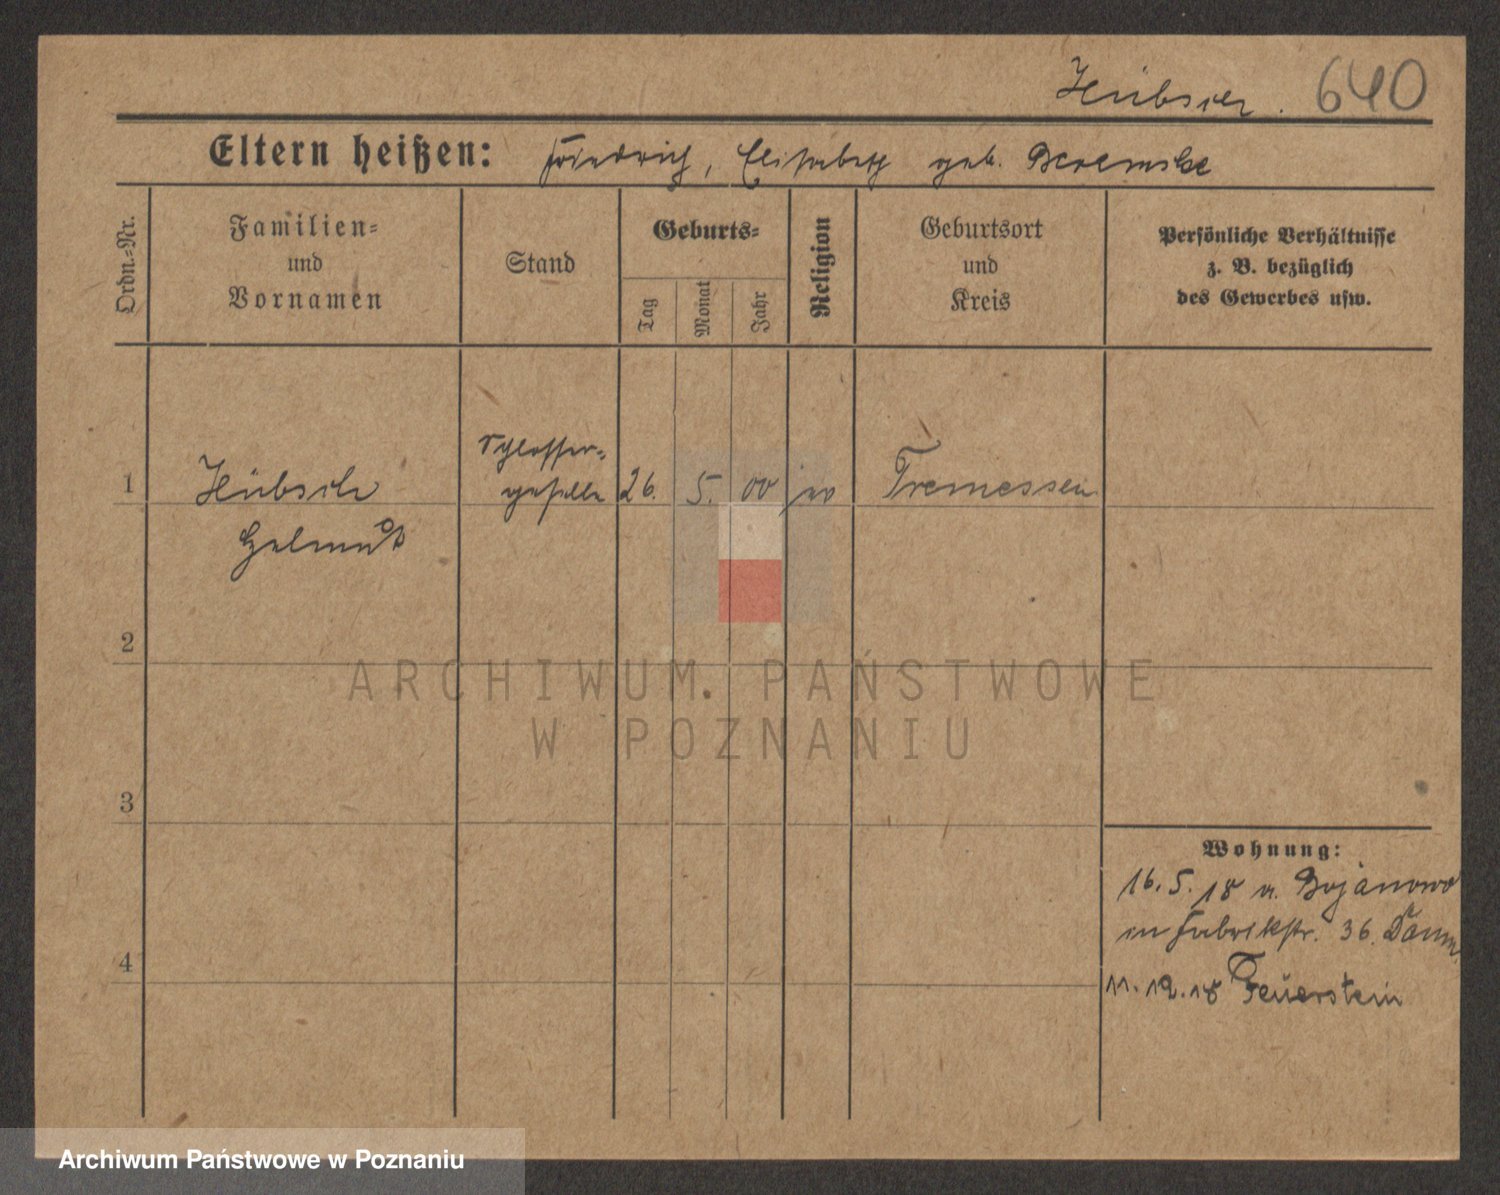 Hübsch. 640
Eltern heißen: Friedrich, Elisabeth geb.
Ordn.-Nr.
Familien- und Vornamen
Stand
Geburts-
Tag
Monat
Jahr
Religion
Geburtsort und Kreis
Persönliche Verhältnisse
z. B. bezüglich
des Gewerbes usw.
1 Hübsch Schlosser- 26. 5. 00 Tremessen
Helmut geselle
2
3
4
Wohnung:
16. 5. 18 v. Bojanowo
Fabrikstr. 36.
11. 12. 18 Feuerstein
ARCHIWUM PAŃSTWOWE
W POZNANIU
Archiwum Państwowe w Poznaniu